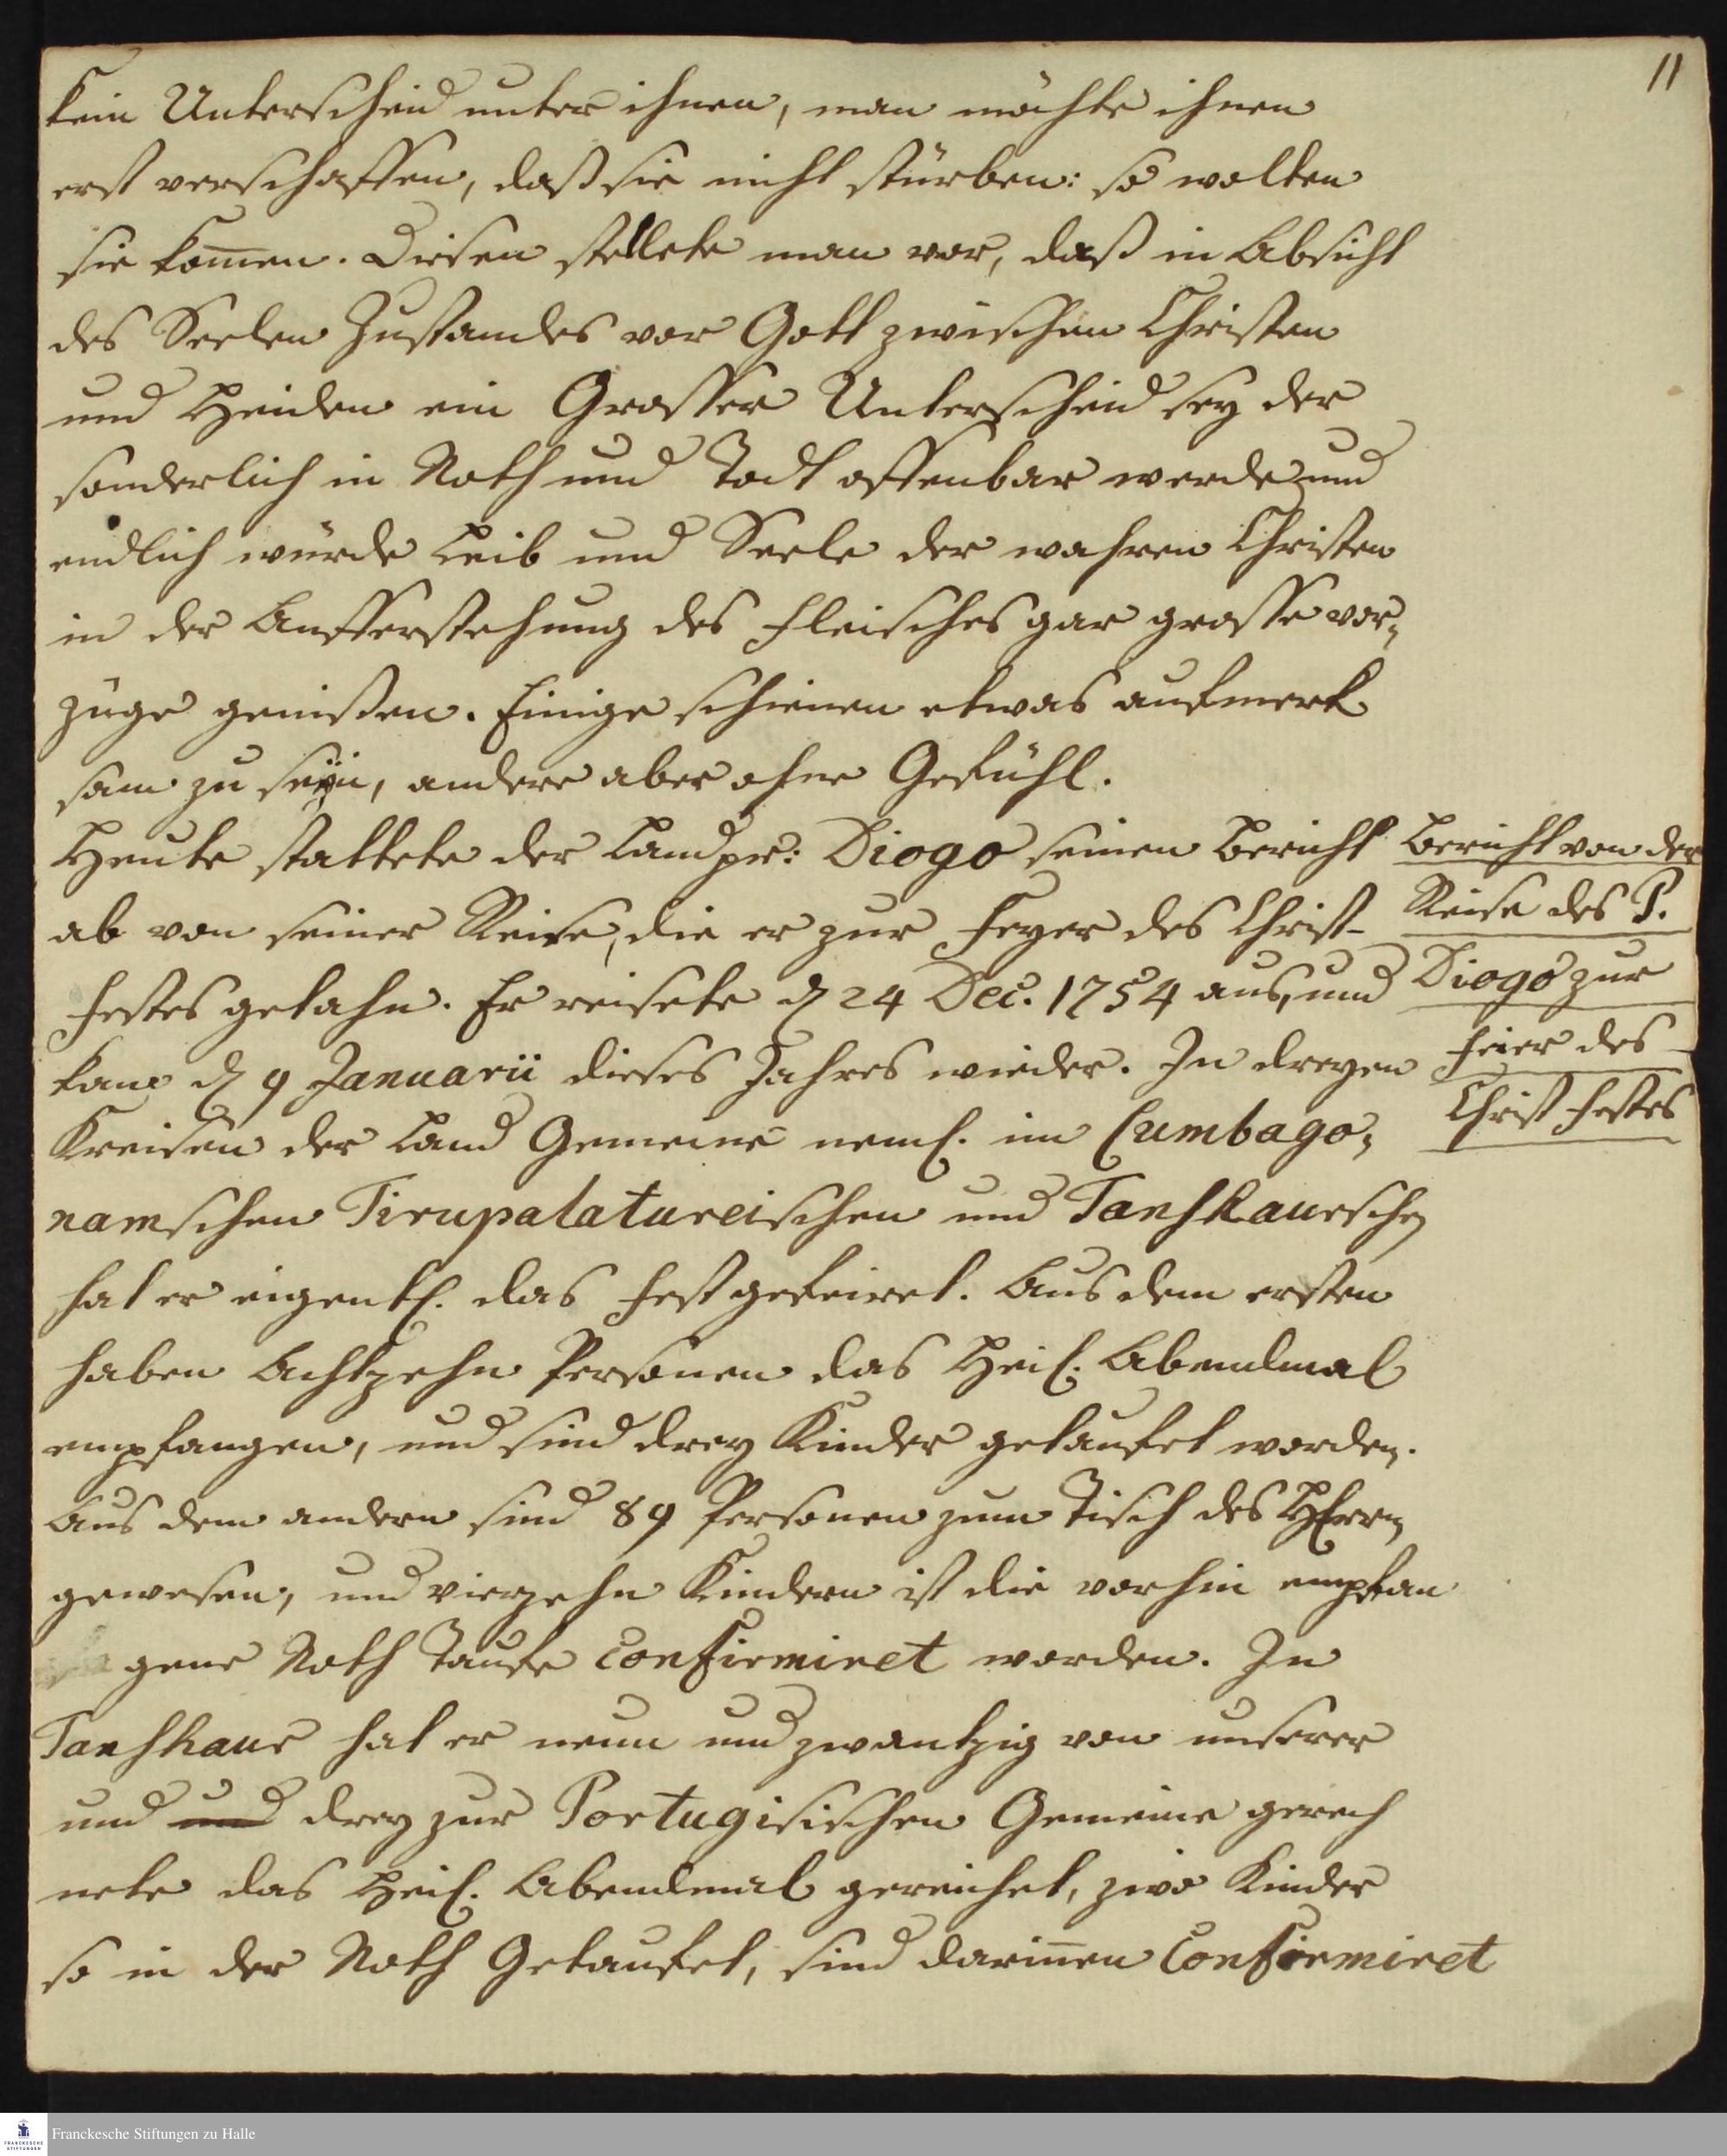 11
kein Unterscheid unter ihnen, man möchte ihnen
erst verschaffen, daß sie nicht stürben: so wolten
sie kom̅en. Diesen stellete man vor, daß in Absicht
des Seelen Zustandes vor Gott zwischen Christen
und Heiden ein Grosser Unterscheid sey der
sonderlich in Noth und Todt offenbar werde und
endlich würde Leib und Seele der wahren Christen
in der Aufferstehung des Fleisches gar grosse vor„
züge genißen. Einige schienen etwas aufmerk
sam zu seÿn, andere aber ohne Gefühl.
Heute stattete der Landpr: Diogo seinen Bericht
ab von seiner Reise, die er zur Feyer des Christ-
Festes getahn. Er reisete d 24 Dec. 1754 aus, und
kam d 9 Januarii dieses Jahres wieder. In dreyen
Kreisen der Land Gemeine neml. im Cumbago„
namschen Tirupalatureischen und Tanshaurschen
hat er eigentl. das Fest gefeiret. Aus dem ersten
haben Achtzehn Personen das Heil. Abendmal
empfangen, und sind drey Kinder getaufet worden.
Aus dem andern sind 89 Personen zum Tisch des HErrn
gewesen, und vierzehn Kindern ist die vorhin empfan
gene Noth Taufe confirmiret worden. In
Tanshaur hat er neun und zwantzig von unserer
und und drey zur Portugisischen Gemeine gerech
nete das Heil. Abendmal gereichet, zwo Kinder
so in der Noth Getaufet, sind darin̅en Confirmiret
Bericht von der
Reise des P.
Diogo zur
Feier des
Christ Festes
Franckesche Stiftungen zu Halle